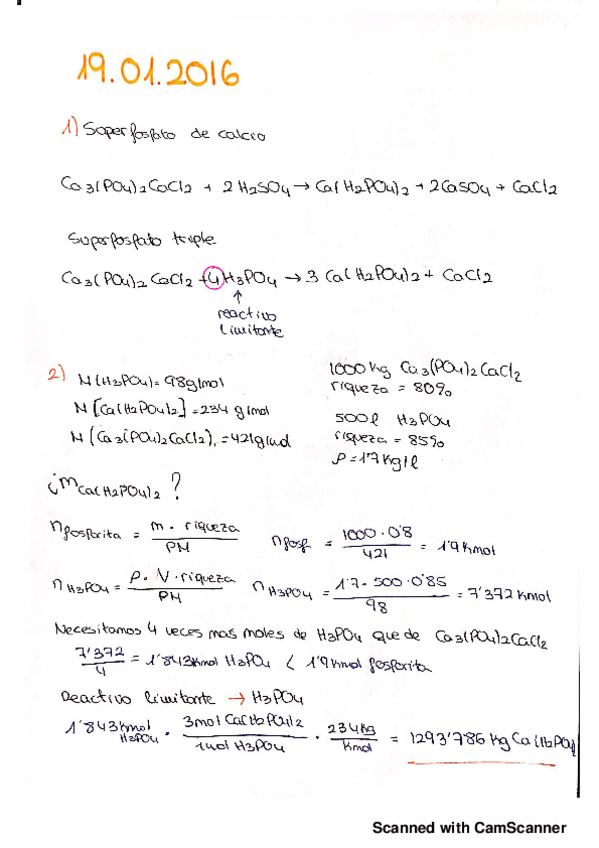 19.01.2016
1) Superfosfato de calcio
Ca3(PO4)2CaCl2 + 2H2SO4 → Ca(H2PO4)2 + 2CaSO4 + CaCl2
Superfosfato triple
Ca3(PO4)2CaCl2 + 4 H3PO4 → 3 Ca(H2PO4)2 + CaCl2
↑
reactivo
limitante
2) M(H3PO4) = 98g/mol
M[Ca(H2PO4)2] = 234 g/mol
M(Ca3(PO4)2CaCl2) = 421g/mol
1000 kg Ca3(PO4)2CaCl2
riqueza = 80%
500l H3PO4
riqueza = 85%
ρ = 1'7 kg/l
¿mCa(H2PO4)2?
nfosforita = m · riqueza / PM
nfosf = 1000 · 0'8 / 421 = 1'9 Kmol
nH3PO4 = ρ · V · riqueza / PM
nH3PO4 = 1'7 · 500 · 0'85 / 98 = 7'372 Kmol
Necesitamos 4 veces mas moles de H3PO4 que de Ca3(PO4)2CaCl2
7'372 / 4 = 1'843 Kmol H3PO4 < 1'9 Kmol fosforita
Reactivo limitante → H3PO4
1'843 Kmol H3PO4 · 3mol Ca(H2PO4)2 / 1mol H3PO4 · 234kg / Kmol = 1293'786 Kg Ca(H2PO4)
Scanned with CamScanner